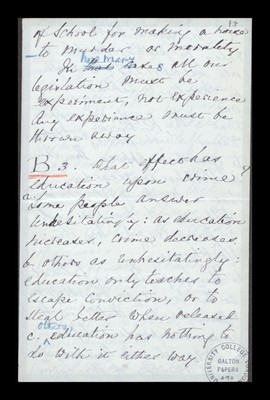 13
of School for making a noise
to murder or morality
how many
all our
legislation must be
experiment, not experience
Any experience must be
thrown away
B. 3. What effect has
education upon crime?
a. Some people answer
unhesitatingly: as education
increases, crime decreases
b. others as unhesitatingly:
education only teaches to
escape conviction, or to
steal better when released
others
c. education has nothing to
do with it either way
UNIVERSITY COLLEGE
GALTON
PAPERS